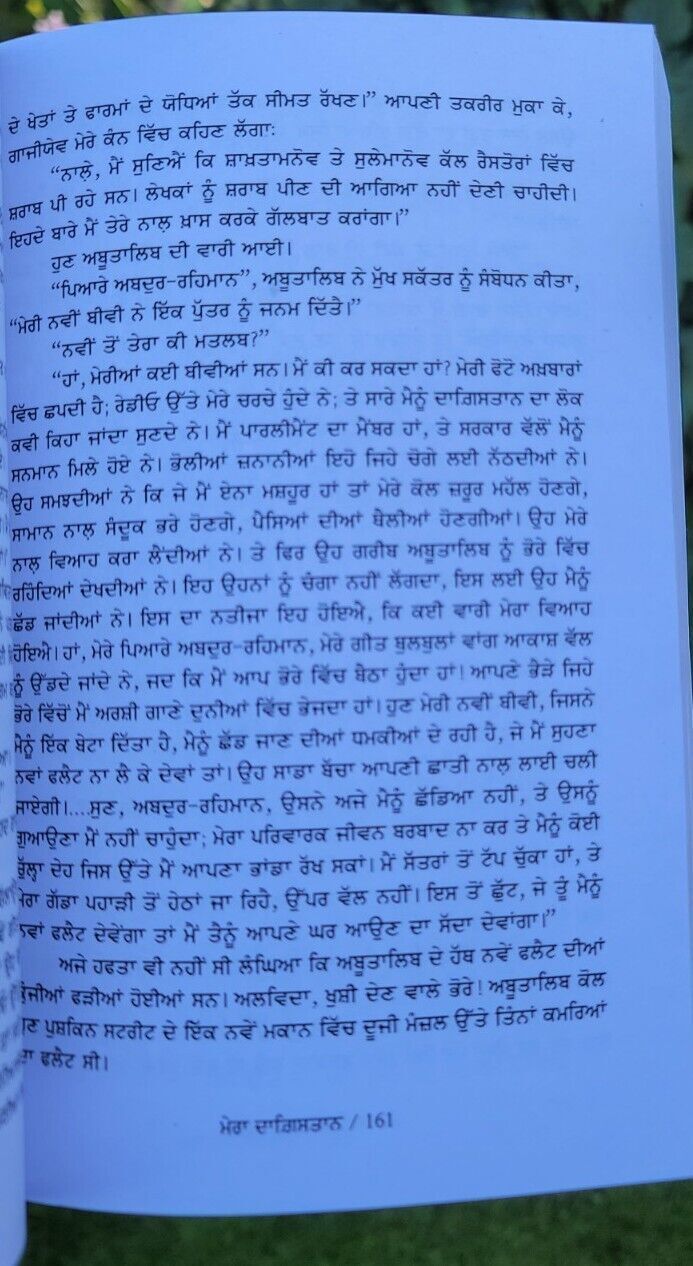 ਦੇ ਖੇਤਾਂ ਤੇ ਫਾਰਮਾਂ ਦੇ ਯੋਧਿਆਂ ਤੱਕ ਸੀਮਤ ਰੱਖਣ।” ਆਪਣੀ ਤਕਰੀਰ ਮੁਕਾ ਕੇ,
ਗਾਜੀਯੇਵ ਮੇਰੇ ਕੰਨ ਵਿੱਚ ਕਹਿਣ ਲੱਗਾ:
“ਨਾਲੇ, ਮੈਂ ਸੁਣਿਐਂ ਕਿ ਸ਼ਾਖ਼ਤਾਮਾਨੋਵ ਤੇ ਸੁਲੇਮਾਨੋਵ ਕੱਲ ਰੈਸਤੋਰਾਂ ਵਿੱਚ
ਸ਼ਰਾਬ ਪੀ ਰਹੇ ਸਨ। ਲੇਖਕਾਂ ਨੂੰ ਸ਼ਰਾਬ ਪੀਣ ਦੀ ਆਗਿਆ ਨਹੀਂ ਦੇਣੀ ਚਾਹੀਦੀ।
ਇਹਦੇ ਬਾਰੇ ਮੈਂ ਤੇਰੇ ਨਾਲ਼ ਖ਼ਾਸ ਕਰਕੇ ਗੱਲਬਾਤ ਕਰਾਂਗਾ।”
ਹੁਣ ਅਬੂਤਾਲਿਬ ਦੀ ਵਾਰੀ ਆਈ।
“ਪਿਆਰੇ ਅਬਦੁਰ-ਰਹਿਮਾਨ”, ਅਬੂਤਾਲਿਬ ਨੇ ਮੁੱਖ ਸਕੱਤਰ ਨੂੰ ਸੰਬੋਧਨ ਕੀਤਾ,
“ਮੇਰੀ ਨਵੀਂ ਬੀਵੀ ਨੇ ਇੱਕ ਪੁੱਤਰ ਨੂੰ ਜਨਮ ਦਿੱਤੈ।”
“ਨਵੀਂ ਤੋਂ ਤੇਰਾ ਕੀ ਮਤਲਬ?”
“ਹਾਂ, ਮੇਰੀਆਂ ਕਈ ਬੀਵੀਆਂ ਸਨ। ਮੈਂ ਕੀ ਕਰ ਸਕਦਾ ਹਾਂ? ਮੇਰੀ ਫੋਟੋ ਅਖ਼ਬਾਰਾਂ
ਵਿੱਚ ਛਪਦੀ ਹੈ; ਰੇਡੀਓ ਉੱਤੇ ਮੇਰੇ ਚਰਚੇ ਹੁੰਦੇ ਨੇ; ਤੇ ਸਾਰੇ ਮੈਨੂੰ ਦਾਗ਼ਿਸਤਾਨ ਦਾ ਲੋਕ
ਕਵੀ ਕਿਹਾ ਜਾਂਦਾ ਸੁਣਦੇ ਨੇ। ਮੈਂ ਪਾਰਲੀਮੈਂਟ ਦਾ ਮੈਂਬਰ ਹਾਂ, ਤੇ ਸਰਕਾਰ ਵੱਲੋਂ ਮੈਨੂੰ
ਸਨਮਾਨ ਮਿਲੇ ਹੋਏ ਨੇ। ਭੋਲੀਆਂ ਜ਼ਨਾਨੀਆਂ ਇਹੋ ਜਿਹੇ ਚੋਗੇ ਲਈ ਨੱਠਦੀਆਂ ਨੇ।
ਉਹ ਸਮਝਦੀਆਂ ਨੇ ਕਿ ਜੇ ਮੈਂ ਏਨਾ ਮਸ਼ਹੂਰ ਹਾਂ ਤਾਂ ਮੇਰੇ ਕੋਲ ਜ਼ਰੂਰ ਮਹੱਲ ਹੋਣਗੇ,
ਸਾਮਾਨ ਨਾਲ਼ ਸੰਦੂਕ ਭਰੇ ਹੋਣਗੇ, ਪੈਸਿਆਂ ਦੀਆਂ ਥੈਲੀਆਂ ਹੋਣਗੀਆਂ। ਉਹ ਮੇਰੇ
ਨਾਲ਼ ਵਿਆਹ ਕਰਾ ਲੈਂਦੀਆਂ ਨੇ। ਤੇ ਫਿਰ ਉਹ ਗਰੀਬ ਅਬੂਤਾਲਿਬ ਨੂੰ ਭੋਰੇ ਵਿੱਚ
ਰਹਿੰਦਿਆਂ ਦੇਖਦੀਆਂ ਨੇ। ਇਹ ਉਹਨਾਂ ਨੂੰ ਚੰਗਾ ਨਹੀਂ ਲੱਗਦਾ, ਇਸ ਲਈ ਉਹ ਮੈਨੂੰ
ਛੱਡ ਜਾਂਦੀਆਂ ਨੇ। ਇਸ ਦਾ ਨਤੀਜਾ ਇਹ ਹੋਇਐ, ਕਿ ਕਈ ਵਾਰੀ ਮੇਰਾ ਵਿਆਹ
ਹੋਇਐ। ਹਾਂ, ਮੇਰੇ ਪਿਆਰੇ ਅਬਦੁਰ-ਰਹਿਮਾਨ, ਮੇਰੇ ਗੀਤ ਬੁਲਬੁਲਾਂ ਵਾਂਗ ਆਕਾਸ਼ ਵੱਲ
ਨੂੰ ਉੱਡਦੇ ਜਾਂਦੇ ਨੇ, ਜਦ ਕਿ ਮੈਂ ਆਪ ਭੋਰੇ ਵਿੱਚ ਬੈਠਾ ਹੁੰਦਾ ਹਾਂ! ਆਪਣੇ ਭੈੜੇ ਜਿਹੇ
ਭੋਰੇ ਵਿੱਚੋਂ ਮੈਂ ਅਰਸ਼ੀ ਗਾਣੇ ਦੁਨੀਆਂ ਵਿੱਚ ਭੇਜਦਾ ਹਾਂ। ਹੁਣ ਮੇਰੀ ਨਵੀਂ ਬੀਵੀ, ਜਿਸਨੇ
ਮੈਨੂੰ ਇੱਕ ਬੇਟਾ ਦਿੱਤਾ ਹੈ, ਮੈਨੂੰ ਛੱਡ ਜਾਣ ਦੀਆਂ ਧਮਕੀਆਂ ਦੇ ਰਹੀ ਹੈ, ਜੇ ਮੈਂ ਸੁਹਣਾ
ਨਵਾਂ ਫਲੈਟ ਨਾ ਲੈ ਕੇ ਦੇਵਾਂ ਤਾਂ। ਉਹ ਸਾਡਾ ਬੱਚਾ ਆਪਣੀ ਛਾਤੀ ਨਾਲ਼ ਲਾਈ ਚਲੀ
ਜਾਏਗੀ।...ਸੁਣ, ਅਬਦੁਰ-ਰਹਿਮਾਨ, ਉਸਨੇ ਅਜੇ ਮੈਨੂੰ ਛੱਡਿਆ ਨਹੀਂ, ਤੇ ਉਸਨੂੰ
ਗੁਆਉਣਾ ਮੈਂ ਨਹੀਂ ਚਾਹੁੰਦਾ; ਮੇਰਾ ਪਰਿਵਾਰਕ ਜੀਵਨ ਬਰਬਾਦ ਨਾ ਕਰ ਤੇ ਮੈਨੂੰ ਕੋਈ
ਚੁੱਲ੍ਹਾ ਦੇਹ ਜਿਸ ਉੱਤੇ ਮੈਂ ਆਪਣਾ ਭਾਂਡਾ ਰੱਖ ਸਕਾਂ। ਮੈਂ ਸੱਤਰਾਂ ਤੋਂ ਟੱਪ ਚੁੱਕਾ ਹਾਂ, ਤੇ
ਮੇਰਾ ਗੱਡਾ ਪਹਾੜੀ ਤੋਂ ਹੇਠਾਂ ਜਾ ਰਿਹੈ, ਉੱਪਰ ਵੱਲ ਨਹੀਂ। ਇਸ ਤੋਂ ਛੁੱਟ, ਜੇ ਤੂੰ ਮੈਨੂੰ
ਨਵਾਂ ਫਲੈਟ ਦੇਵੇਂਗਾ ਤਾਂ ਮੈਂ ਤੈਨੂੰ ਆਪਣੇ ਘਰ ਆਉਣ ਦਾ ਸੱਦਾ ਦੇਵਾਂਗਾ।”
ਅਜੇ ਹਫਤਾ ਵੀ ਨਹੀਂ ਸੀ ਲੰਘਿਆ ਕਿ ਅਬੂਤਾਲਿਬ ਦੇ ਹੱਥ ਨਵੇਂ ਫਲੈਟ ਦੀਆਂ
ਕੁੰਜੀਆਂ ਫੜੀਆਂ ਹੋਈਆਂ ਸਨ। ਅਲਵਿਦਾ, ਖੁਸ਼ੀ ਦੇਣ ਵਾਲੇ ਭੋਰੇ! ਅਬੂਤਾਲਿਬ ਕੋਲ
ਪੁਸ਼ਕਿਨ ਸਟਰੀਟ ਦੇ ਇੱਕ ਨਵੇਂ ਮਕਾਨ ਵਿੱਚ ਦੂਜੀ ਮੰਜ਼ਲ ਉੱਤੇ ਤਿੰਨਾਂ ਕਮਰਿਆਂ
ਫਲੈਟ ਸੀ।
ਮੇਰਾ ਦਾਗ਼ਿਸਤਾਨ / 161